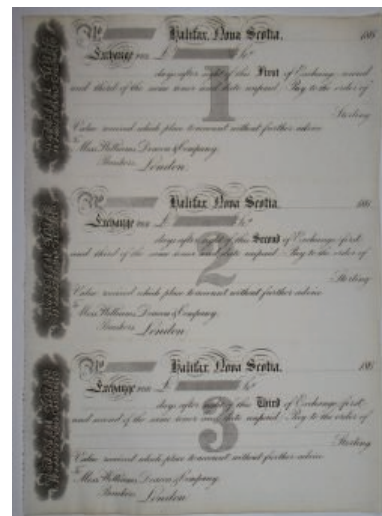 No Halifax, Nova Scotia, 186
Exchange FOR £ Stg.
1
days after sight of this First of Exchange second
and third of the same tenor and date unpaid Pay to the order of
Sterling
Value received which place to account without further advice
To
Mess. Williams, Deacon & Company,
Bankers,
London.
No Halifax, Nova Scotia, 186
Exchange FOR £ Stg.
2
days after sight of this Second of Exchange first
and third of the same tenor and date unpaid Pay to the order of
Sterling
Value received which place to account without further advice
To
Mess. Williams, Deacon & Company,
Bankers,
London.
No Halifax, Nova Scotia, 186
Exchange FOR £ Stg.
3
days after sight of this Third of Exchange first
and second of the same tenor and date unpaid Pay to the order of
Sterling
Value received which place to account without further advice
To
Mess. Williams, Deacon & Company,
Bankers,
London.